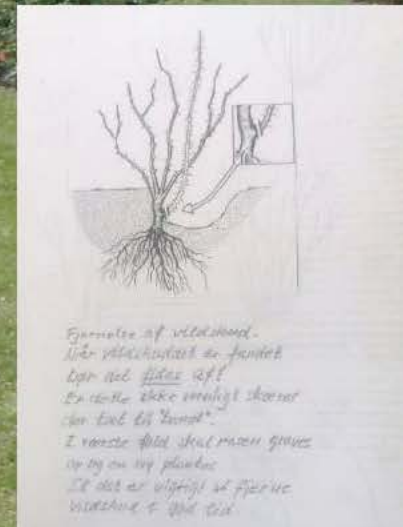 Fjernelse af vildskud.
Når vildskudet er fundet
bør det flåes af!
Er dette ikke muligt skæres
der tæt til
I værste fald skal rosen graves
op og en ny plantes
det er vigtigt at fjerne
vildskud i god tid.